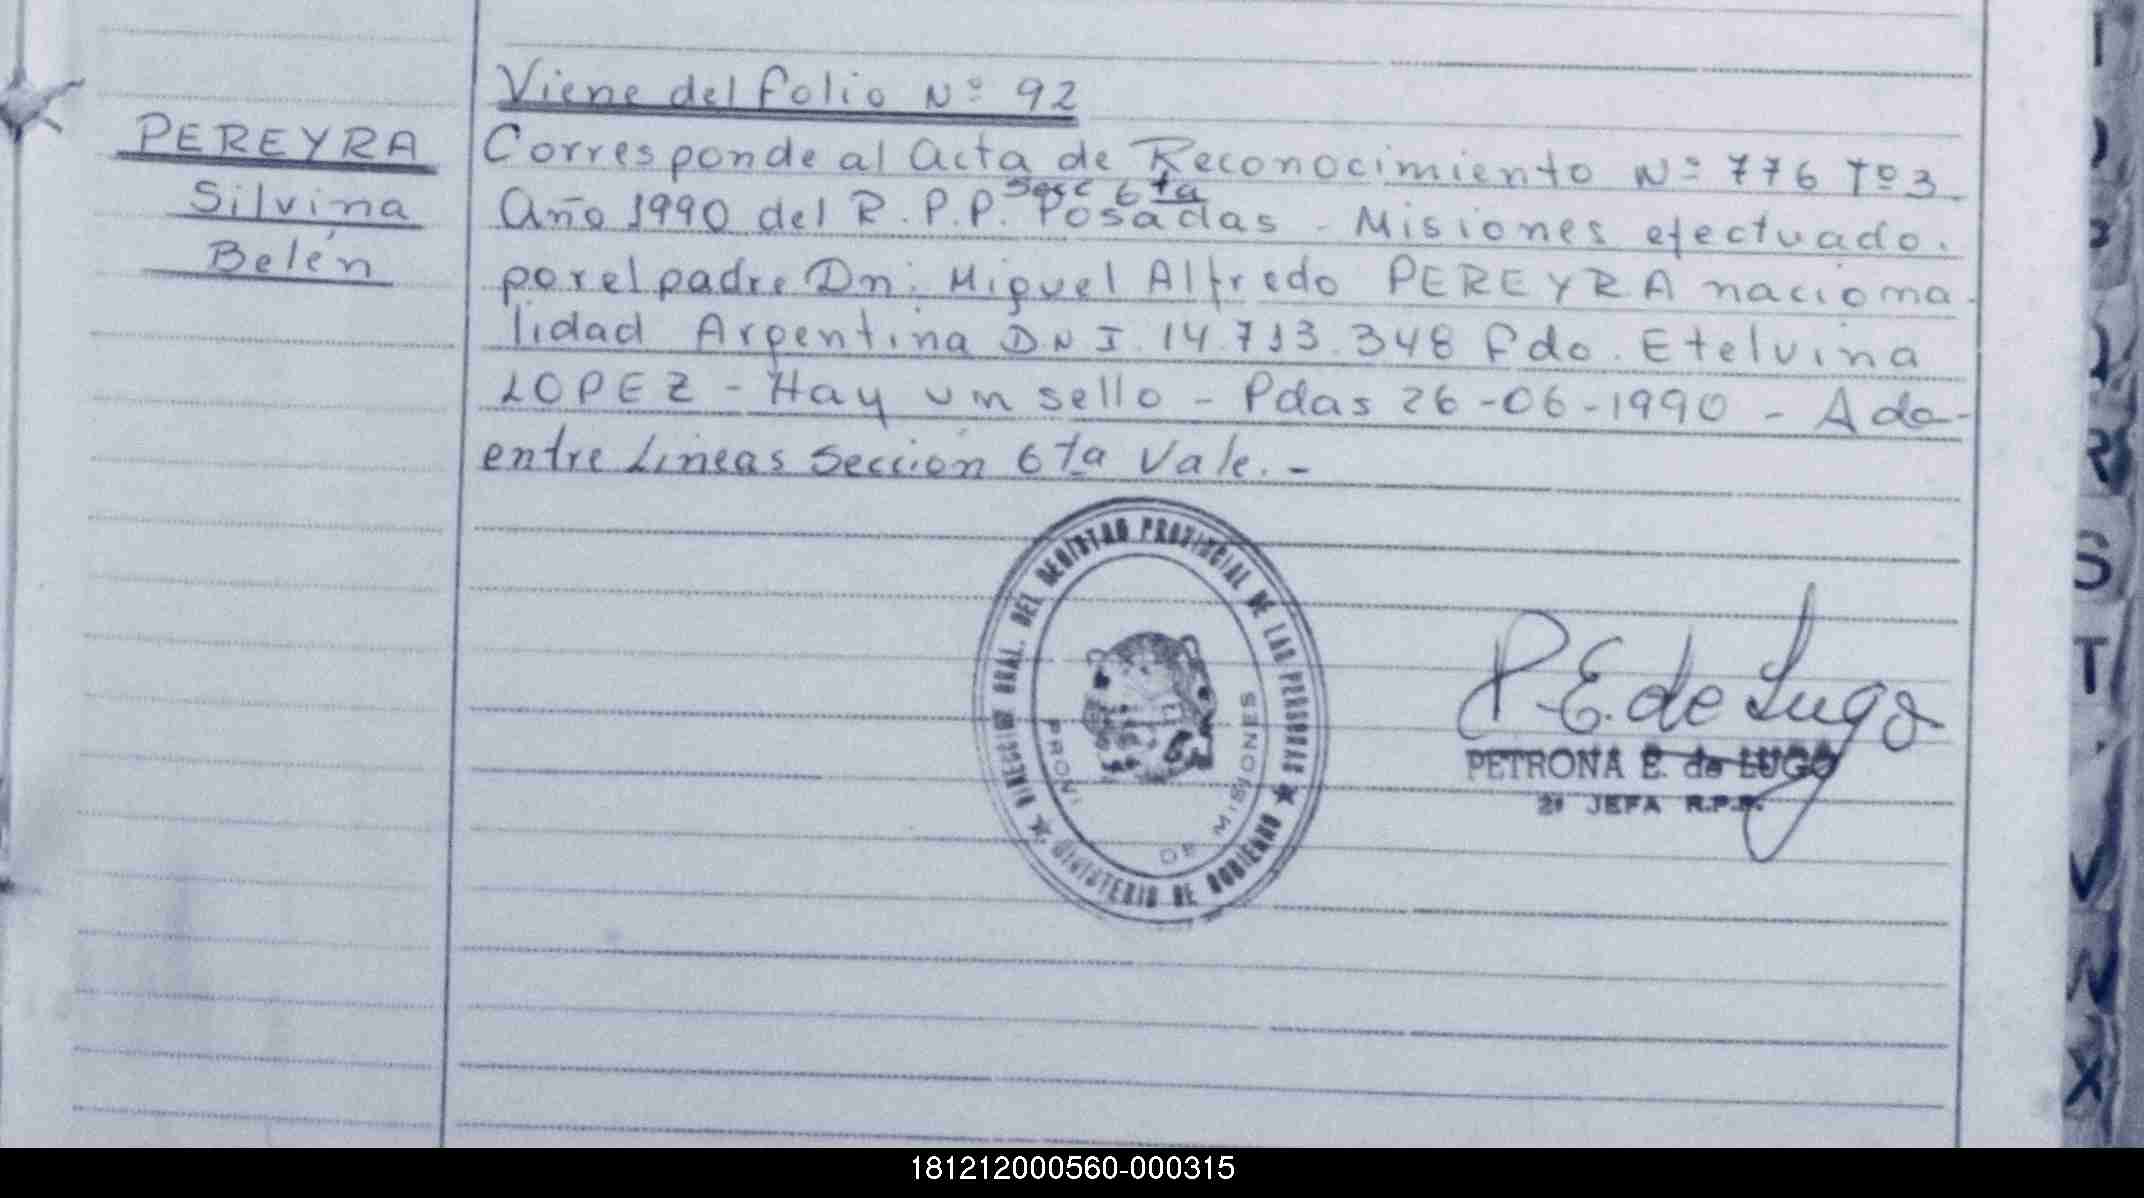 Viene del folio Nº 92
PEREYRA
Silvina
Belén
Corresponde al acta de Reconocimiento Nº 776 Tº 3
Secc 6ta
Año 1990 del R.P.P. Posadas - Misiones efectuado.
por el padre Dn: Miguel Alfredo PEREYRA naciona-
lidad Argentina DNI. 14.713.348 fdo. Etelvina
LOPEZ - Hay un sello - Pdas 26-06-1990 - Ado-
entre Líneas Sección 6ta Vale.-
DIRECCION GRAL. DEL REGISTRO PROVINCIAL DE LAS PERSONAS
MINISTERIO DE GOBIERNO
DE MISIONES
P.E. de Lugo
PETRONA E. de LUGO
2ª JEFA R.P.P.
S
T
V
W
X
181212000560-000315